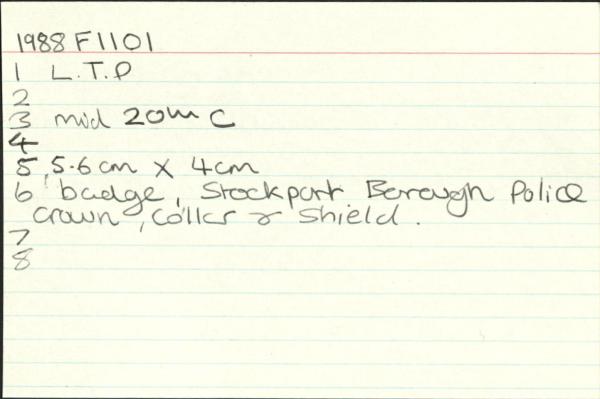 1988 F1101
1 L.T.P
2
3 mid 20th C
4
5 5.6cm x 4cm
6 badge, Stockport Borough Police
crown, collar & shield.
7
8